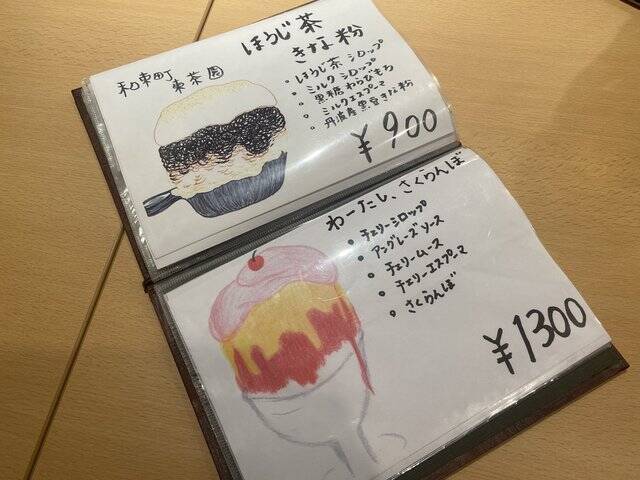 ほうじ茶
きな粉
和束町
東茶園
• ほうじ茶シロップ
• ミルクシロップ
• 黒糖わらびもち
• ミルクエスプーマ
• 丹波産黒豆きな粉
¥900
わーたし、さくらんぼ
• チェリーシロップ
• アングレーズソース
• チェリームース
• チェリーエスプーマ
• さくらんぼ
¥1300